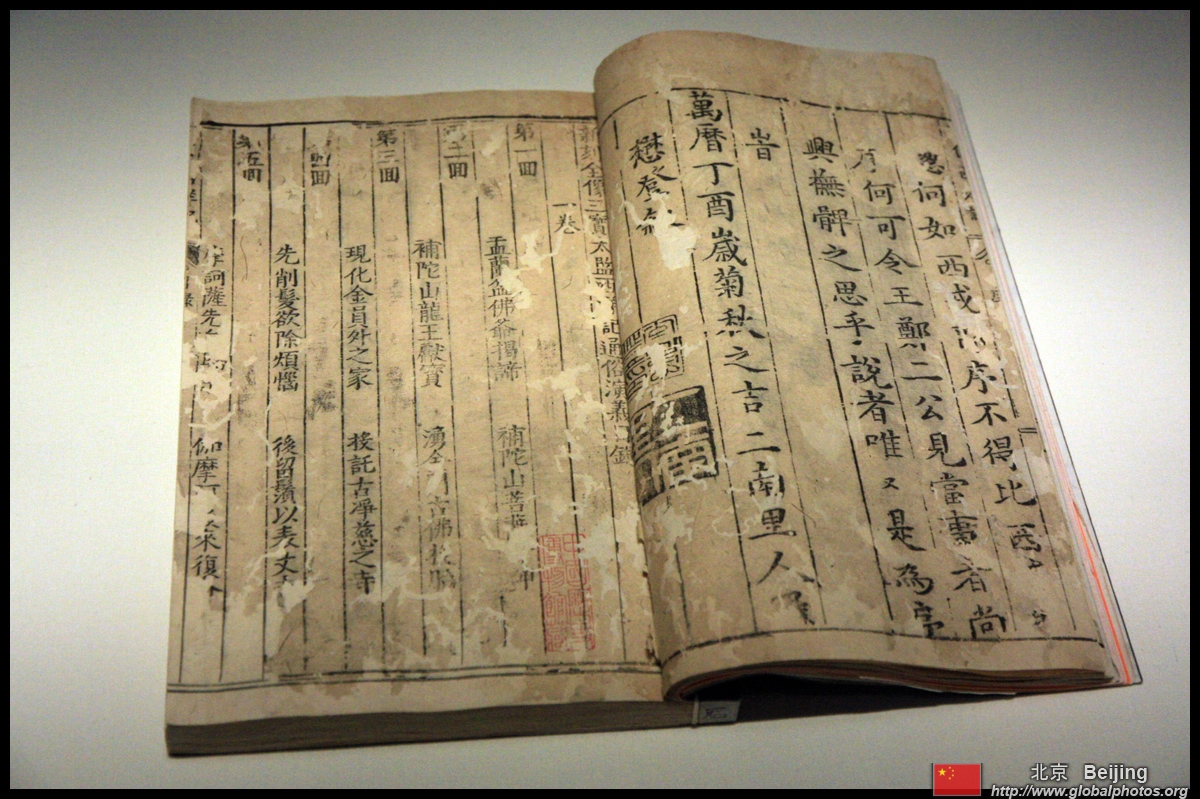 何如西戎 序不得比西
序何可令王鄭二公見當事者尚
興撫髀之思乎說者唯又是為序
旹
萬曆丁酉歲菊秋之吉二南里人羅
懋登叙
新刻全像三寶太監西洋記通俗演義目錄
一卷
第一回 盂蘭盆佛爺揭諦 補陀山菩
第二回 補陀山龍王獻寶 湧金門古佛投胎
第三回 現化金員外之家 接託古淨慈之寺
第四回 先削髮欲除煩惱 後留鬚以表丈
第五回 詞薩先 伽摩 來復
北京 Beijing
http://www.globalphotos.org